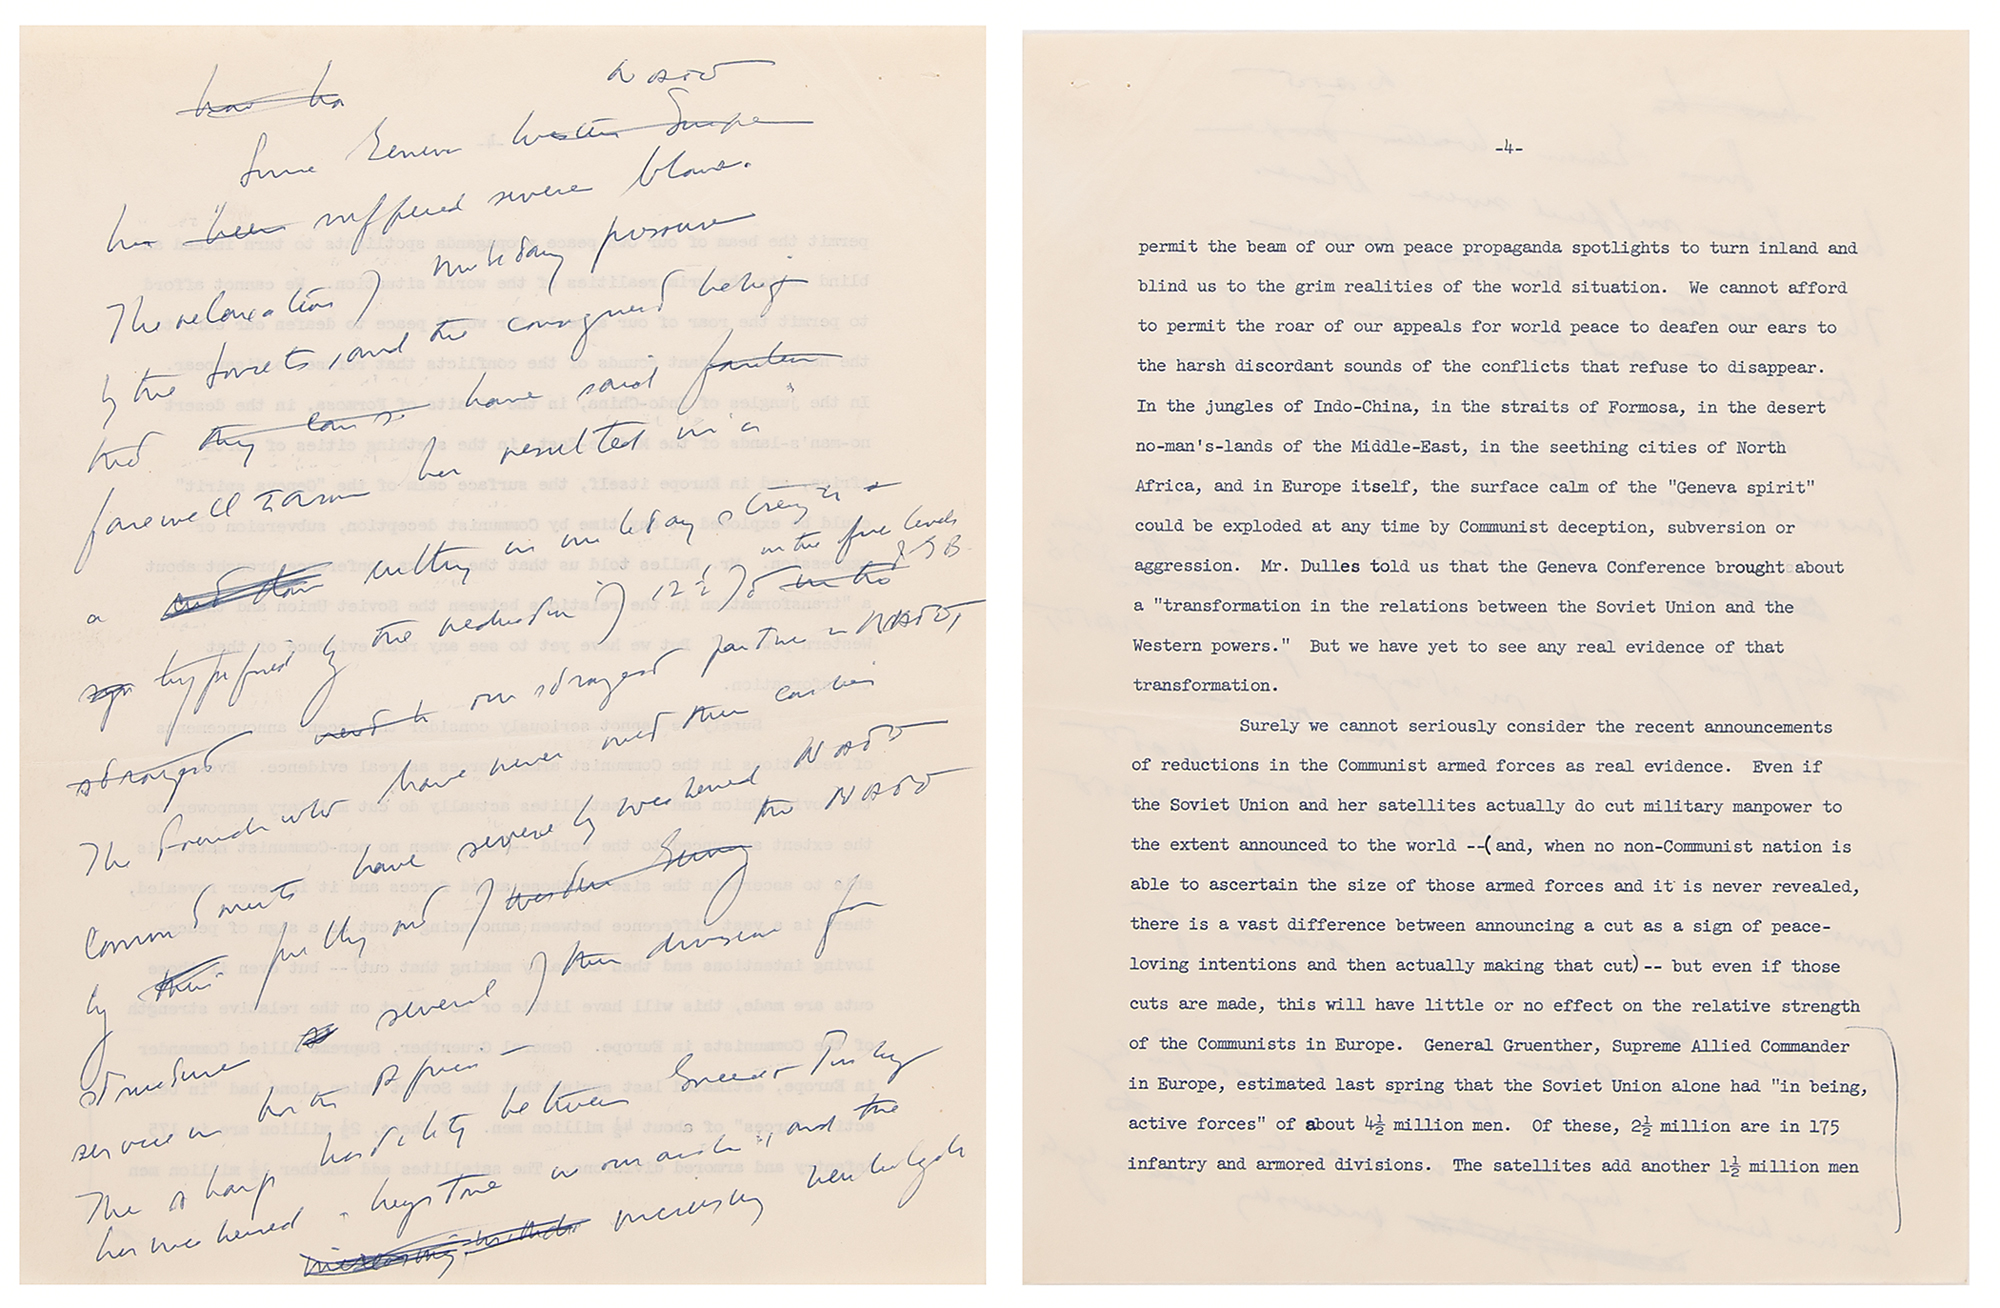 NATO
Since Geneva Western Europe
has been suffered severe blows.
The relaxation of military pressure
by the Soviets, and the consequent belief
that they can so have said farther
farewell to arms has resulted in a
a cutting in military strength
typified by the reduction of 12½ % in the force levels
strongest our strongest partner in NATO,
The French who have never met their earlier
commitments have severely weakened NATO
by their pulling out of Western Europe the NATO
structure several of their divisions for
service in North Africa –
The sharp hostility between Greece & Turkey
has weakened a keystone in our arch", and the
increasing increasing neutralist
-4-
permit the beam of our own peace propaganda spotlights to turn inland and
blind us to the grim realities of the world situation. We cannot afford
to permit the roar of our appeals for world peace to deafen our ears to
the harsh discordant sounds of the conflicts that refuse to disappear.
In the jungles of Indo-China, in the straits of Formosa, in the desert
no-man's-lands of the Middle-East, in the seething cities of North
Africa, and in Europe itself, the surface calm of the "Geneva spirit"
could be exploded at any time by Communist deception, subversion or
aggression. Mr. Dulles told us that the Geneva Conference brought about
a "transformation in the relations between the Soviet Union and the
Western powers." But we have yet to see any real evidence of that
transformation.
Surely we cannot seriously consider the recent announcements
of reductions in the Communist armed forces as real evidence. Even if
the Soviet Union and her satellites actually do cut military manpower to
the extent announced to the world --(and, when no non-Communist nation is
able to ascertain the size of those armed forces and it is never revealed,
there is a vast difference between announcing a cut as a sign of peace-
loving intentions and then actually making that cut)-- but even if those
cuts are made, this will have little or no effect on the relative strength
of the Communists in Europe. General Gruenther, Supreme Allied Commander
in Europe, estimated last spring that the Soviet Union alone had "in being,
active forces" of about 4½ million men. Of these, 2½ million are in 175
infantry and armored divisions. The satellites add another 1½ million men